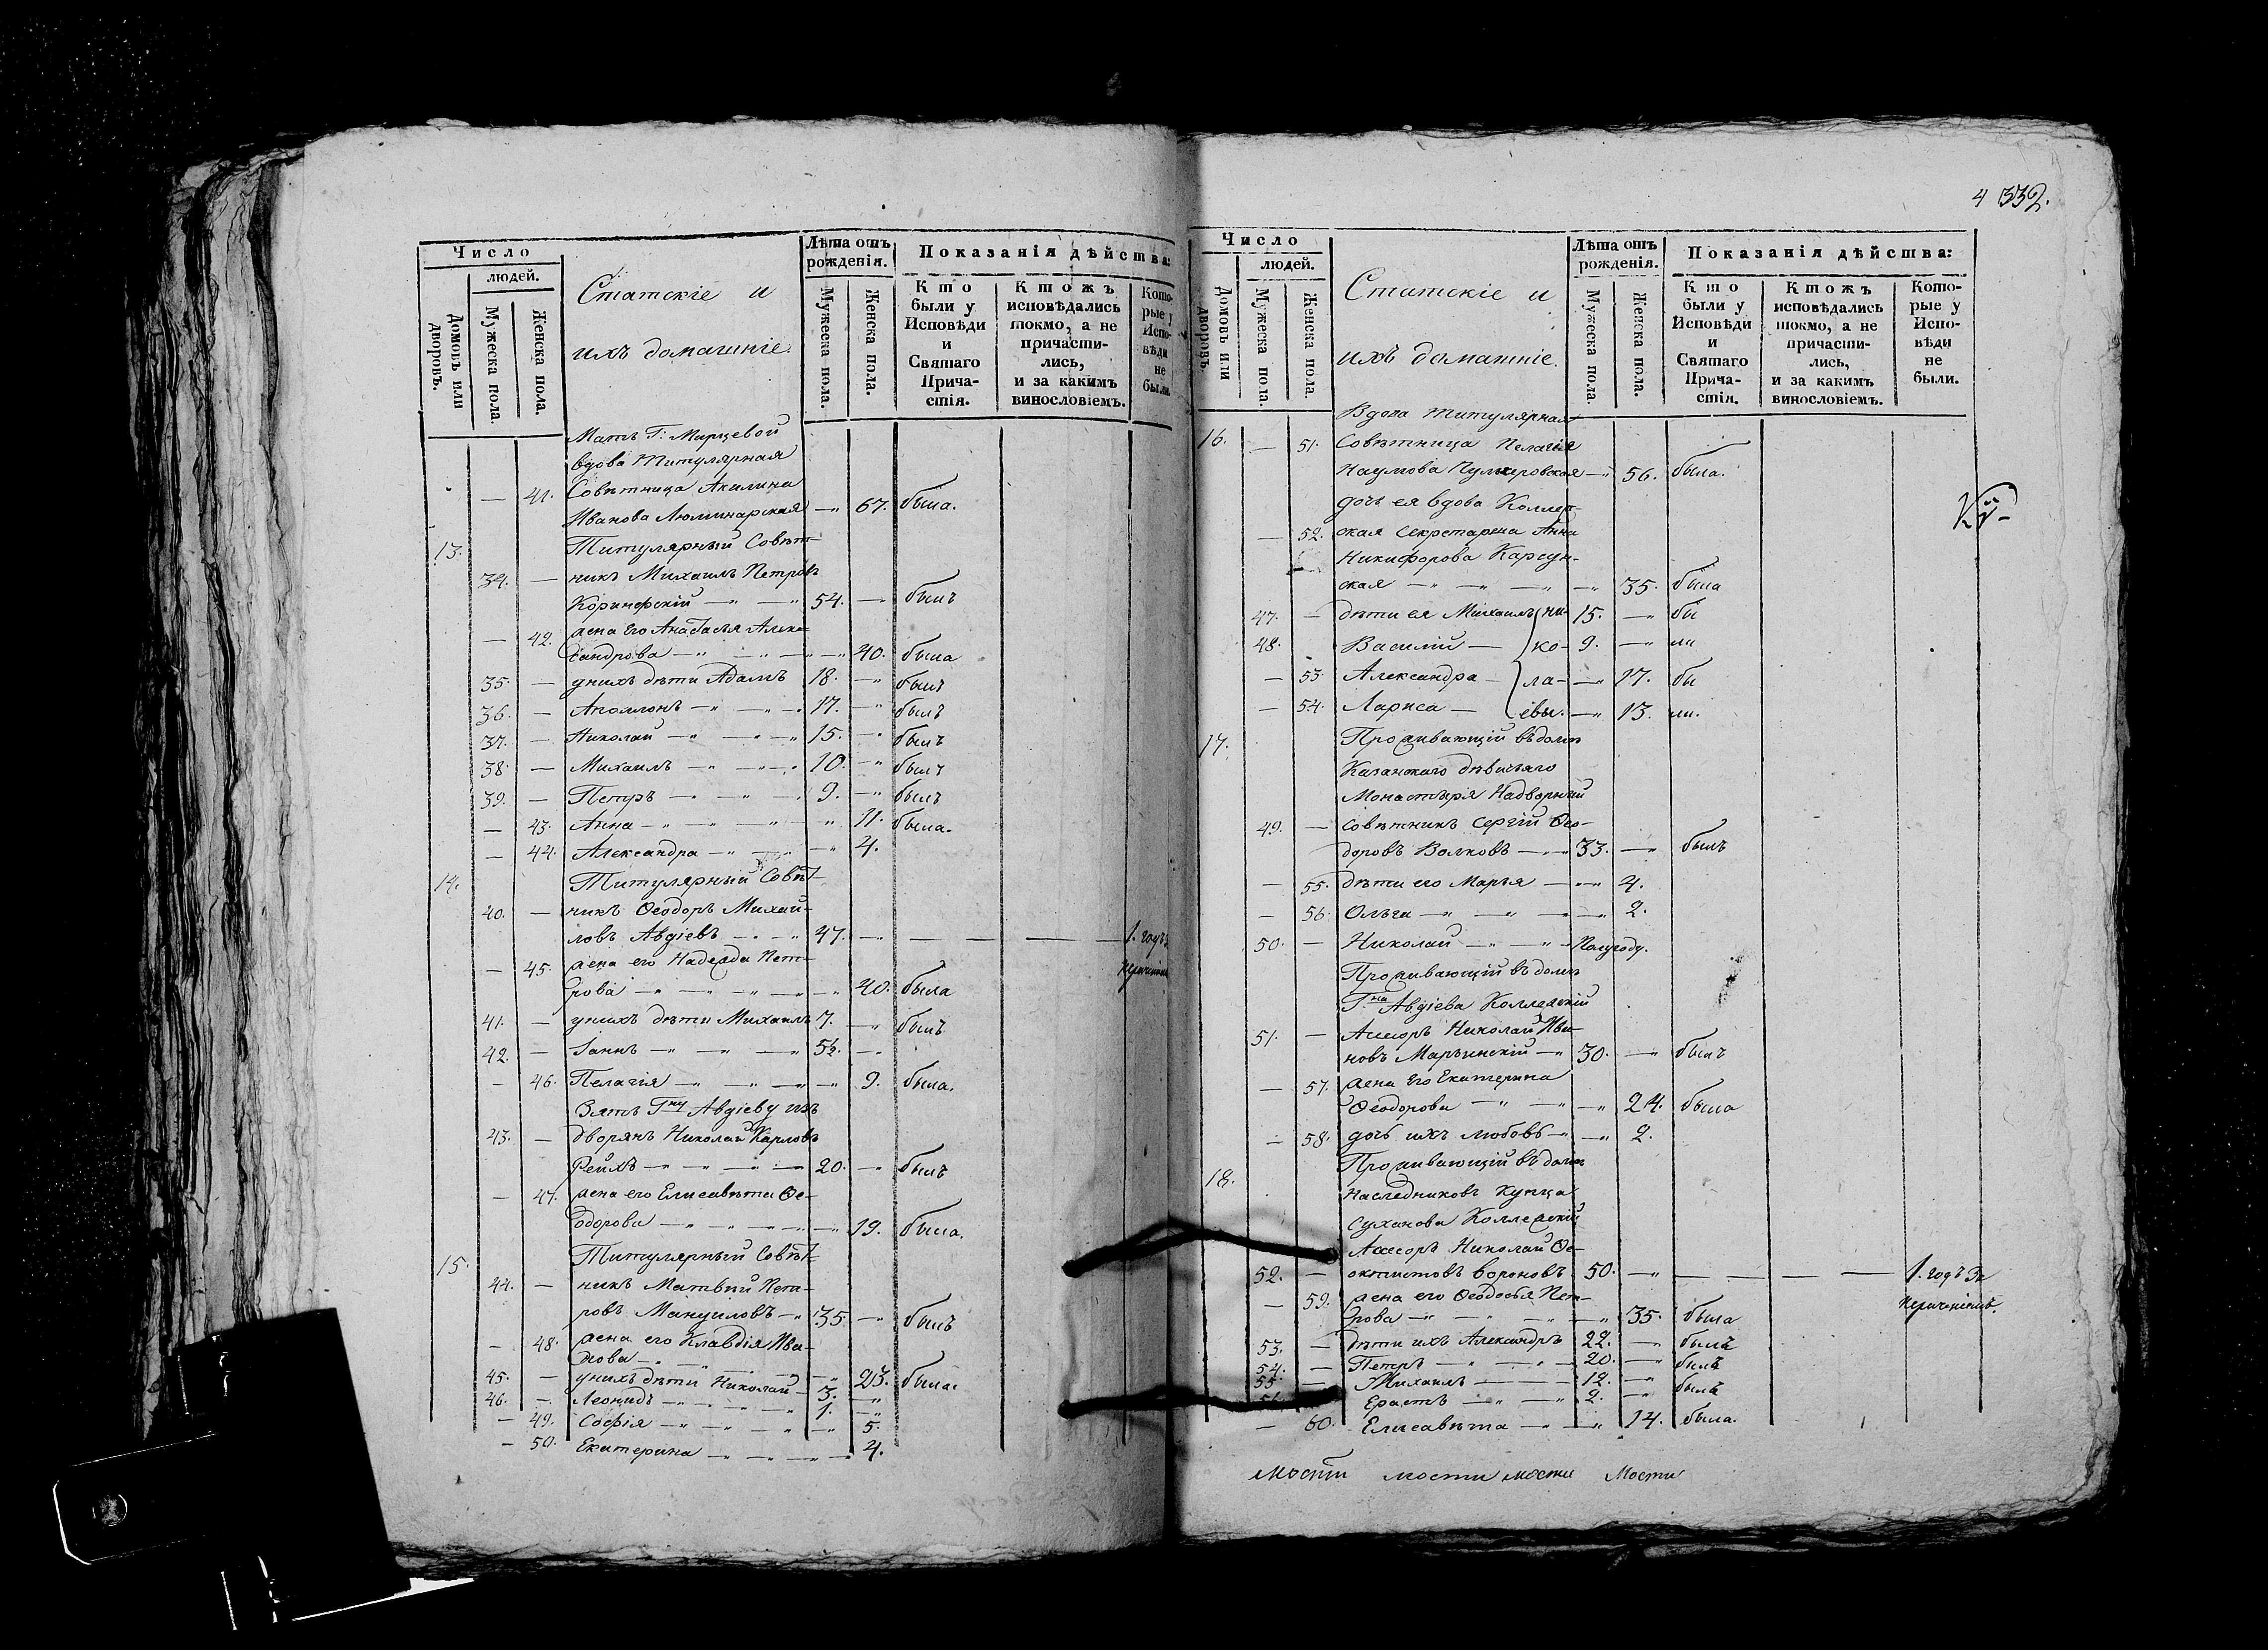 Число
людей.
Домовъ или дворовъ.
Мужеска пола.
Женска пола.
Статскіе и
ихъ домашніе.
Лѣта отъ рожденія.
Мужеска пола.
Женска пола.
Показанія дѣйства:
Кто были у Исповѣди и Святаго Прича-стія.
Ктожъ исповѣдались токмо, а не причасти-лись, и за какимъ винословіемъ.
Кото-рые у Испо-вѣди не были.
Мать Г: Мирцевой
вдова Титулярная
— 41. Совѣтница Акилина
Иванова Люминарская — 67. была.
13. Титулярный Совѣт-
34. — никъ Михаилъ Петровъ
Коринфскій — 54. — былъ
— 42. жена его Анастасья Алек-
сандрова — 40. была
35. — у нихъ дѣти Адамъ 18. — былъ
36. — Аполлонъ — 17. — былъ
37. — Николай — 15. — былъ
38. — Михаилъ — 10. — былъ
39. — Петръ — 9. — былъ
— 43. Анна — 11. была.
— 44. Александра — 4.
14. Титулярный Совѣт-
40. — никъ Ѳеодоръ Михай-
ловъ Авдіевъ — 47. — 1. годъ
— 45. жена его Надежда Пет-
рова — 40. была
41. — у нихъ дѣти Михаилъ 7. — былъ
42. — Іаннъ — 5½. —
— 46. Пелагія — 9. была.
Зять Гну Авдіеву изъ
43. — дворянъ Николай Карловъ
Рейхъ — 20. — былъ
— 47. жена его Елисавета Ѳе-
одорова — 19. была.
15. Титулярный Совѣт-
44. — никъ Матвѣй Пет-
ровъ Мануиловъ — 35 — былъ
— 48. жена его Клавдія Ива-
нова — 23. была.
45. — у нихъ дѣти Николай — 3. —
46. — Леонидъ — 1. —
— 49. Софія — 5.
— 50. Екатерина — 4.
4 332.
Число
людей.
Домовъ или дворовъ.
Мужеска пола.
Женска пола.
Статскіе и
ихъ домашніе.
Лѣта отъ рожденія.
Мужеска пола.
Женска пола.
Показанія дѣйства:
Кто были у Исповѣди и Святаго Прича-стія.
Ктожъ исповѣдались токмо, а не причасти-лись, и за какимъ винословіемъ.
Кото-рые у Испо-вѣди не были.
Вдова Титулярная
16. — 51. Совѣтница Пелагія
Наумова — 56. была.
дочь ея вдова Коллеж-
— 52. ская секретарша Анна
Никифорова Карсун-
ская — 35. была
47. — дѣти ея Михаилъ Ни- 15. — бы
48. Василій — ко- 9. — ли
— 53. Александра — ла- — 17. бы
— 54. Лариса — евы. — 13. ли.
17. Проживающій въ домѣ
Казанскаго дѣвичьяго
Монастыря Надворный
49. — совѣтникъ Сергій Ѳео-
доровъ Волковъ — 33. — былъ
— 55. дѣти его Марья — 4.
— 56. Ольга — 2.
50. — Николай — Полугоду.
Проживающій въ домѣ
Гна Авдіева Коллежскій
51. — Ассесоръ Николай Ива-
новъ Марьинскій — 30. — былъ
— 57. жена его Екатерина
Ѳеодорова — 24. была
— 58. дочь ихъ Любовь — 2.
18. Проживающій въ домѣ
наслѣдниковъ купца
Суханова Коллежскій
Ассесоръ Николай Ѳе-
52. — октистовъ Вороновъ 50. — 1. годъ
— 59. жена его Ѳеодосья Пет-
рова — 35. была
53. — дѣти ихъ Александръ 22. — былъ
54. — Петръ — 20. — былъ
55 — Михаилъ — 12. — былъ
Ерастъ — 2. —
— 60. Елисавета — 14. была.
мости мости мости Мости